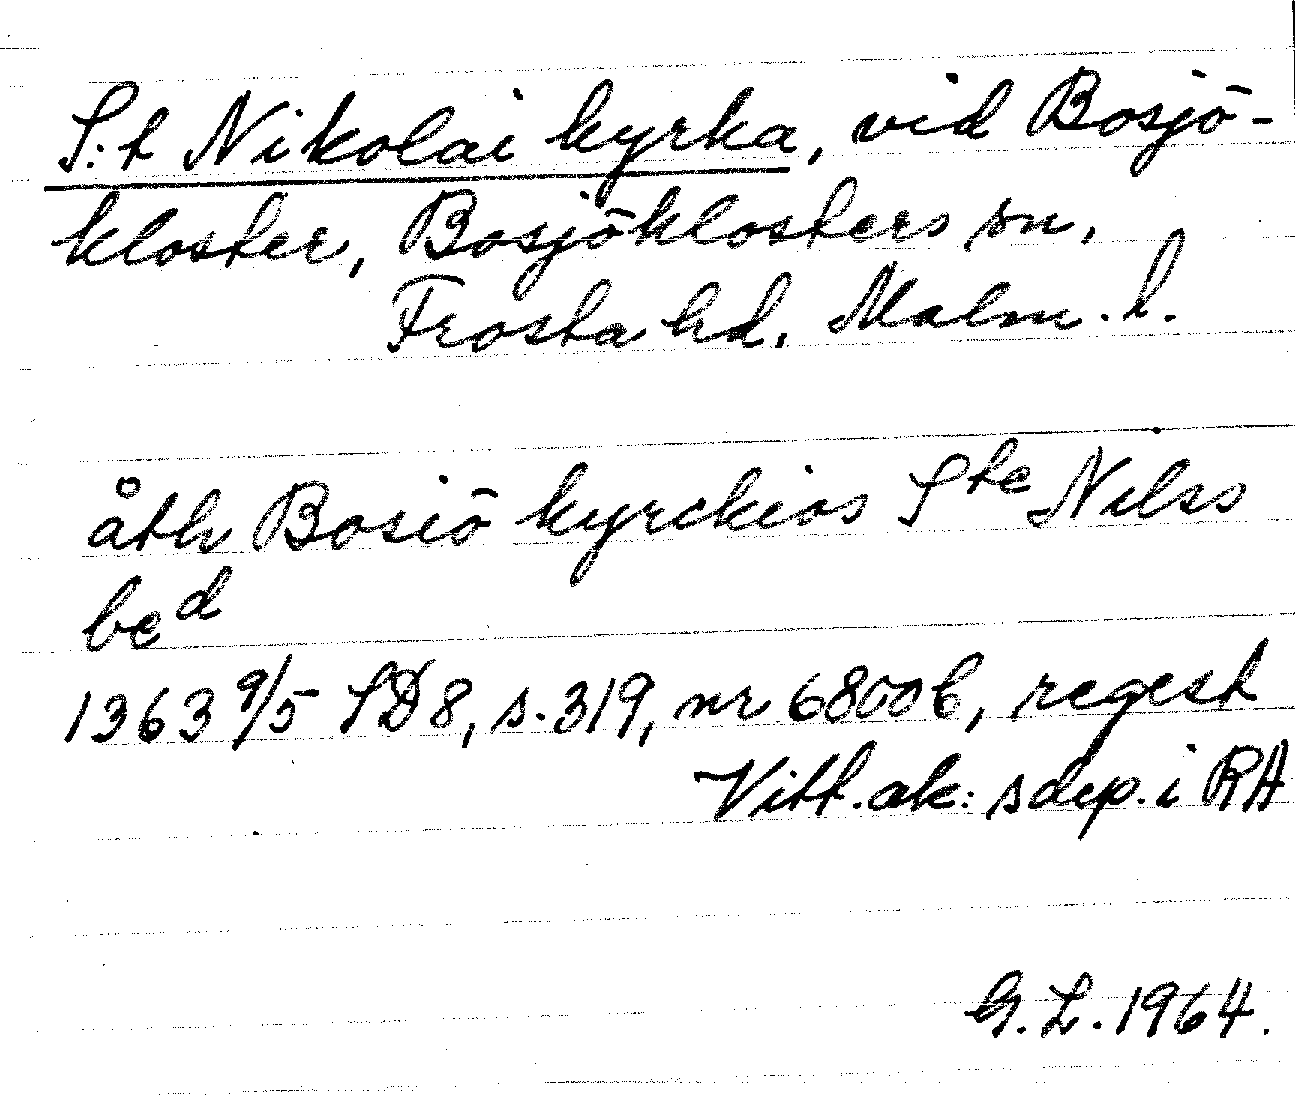 S:t Nikolai kyrka, vid Bosjö-
kloster, Bosjöklosters sn,
Frosta hd, Malm. l.
åth Bosiö kyrckios Ste Nilss
bed
1363 9/5 SD 8, s. 319, nr 6800b, regest
Vitt. ak:s dep. i RA
G. L. 1964.